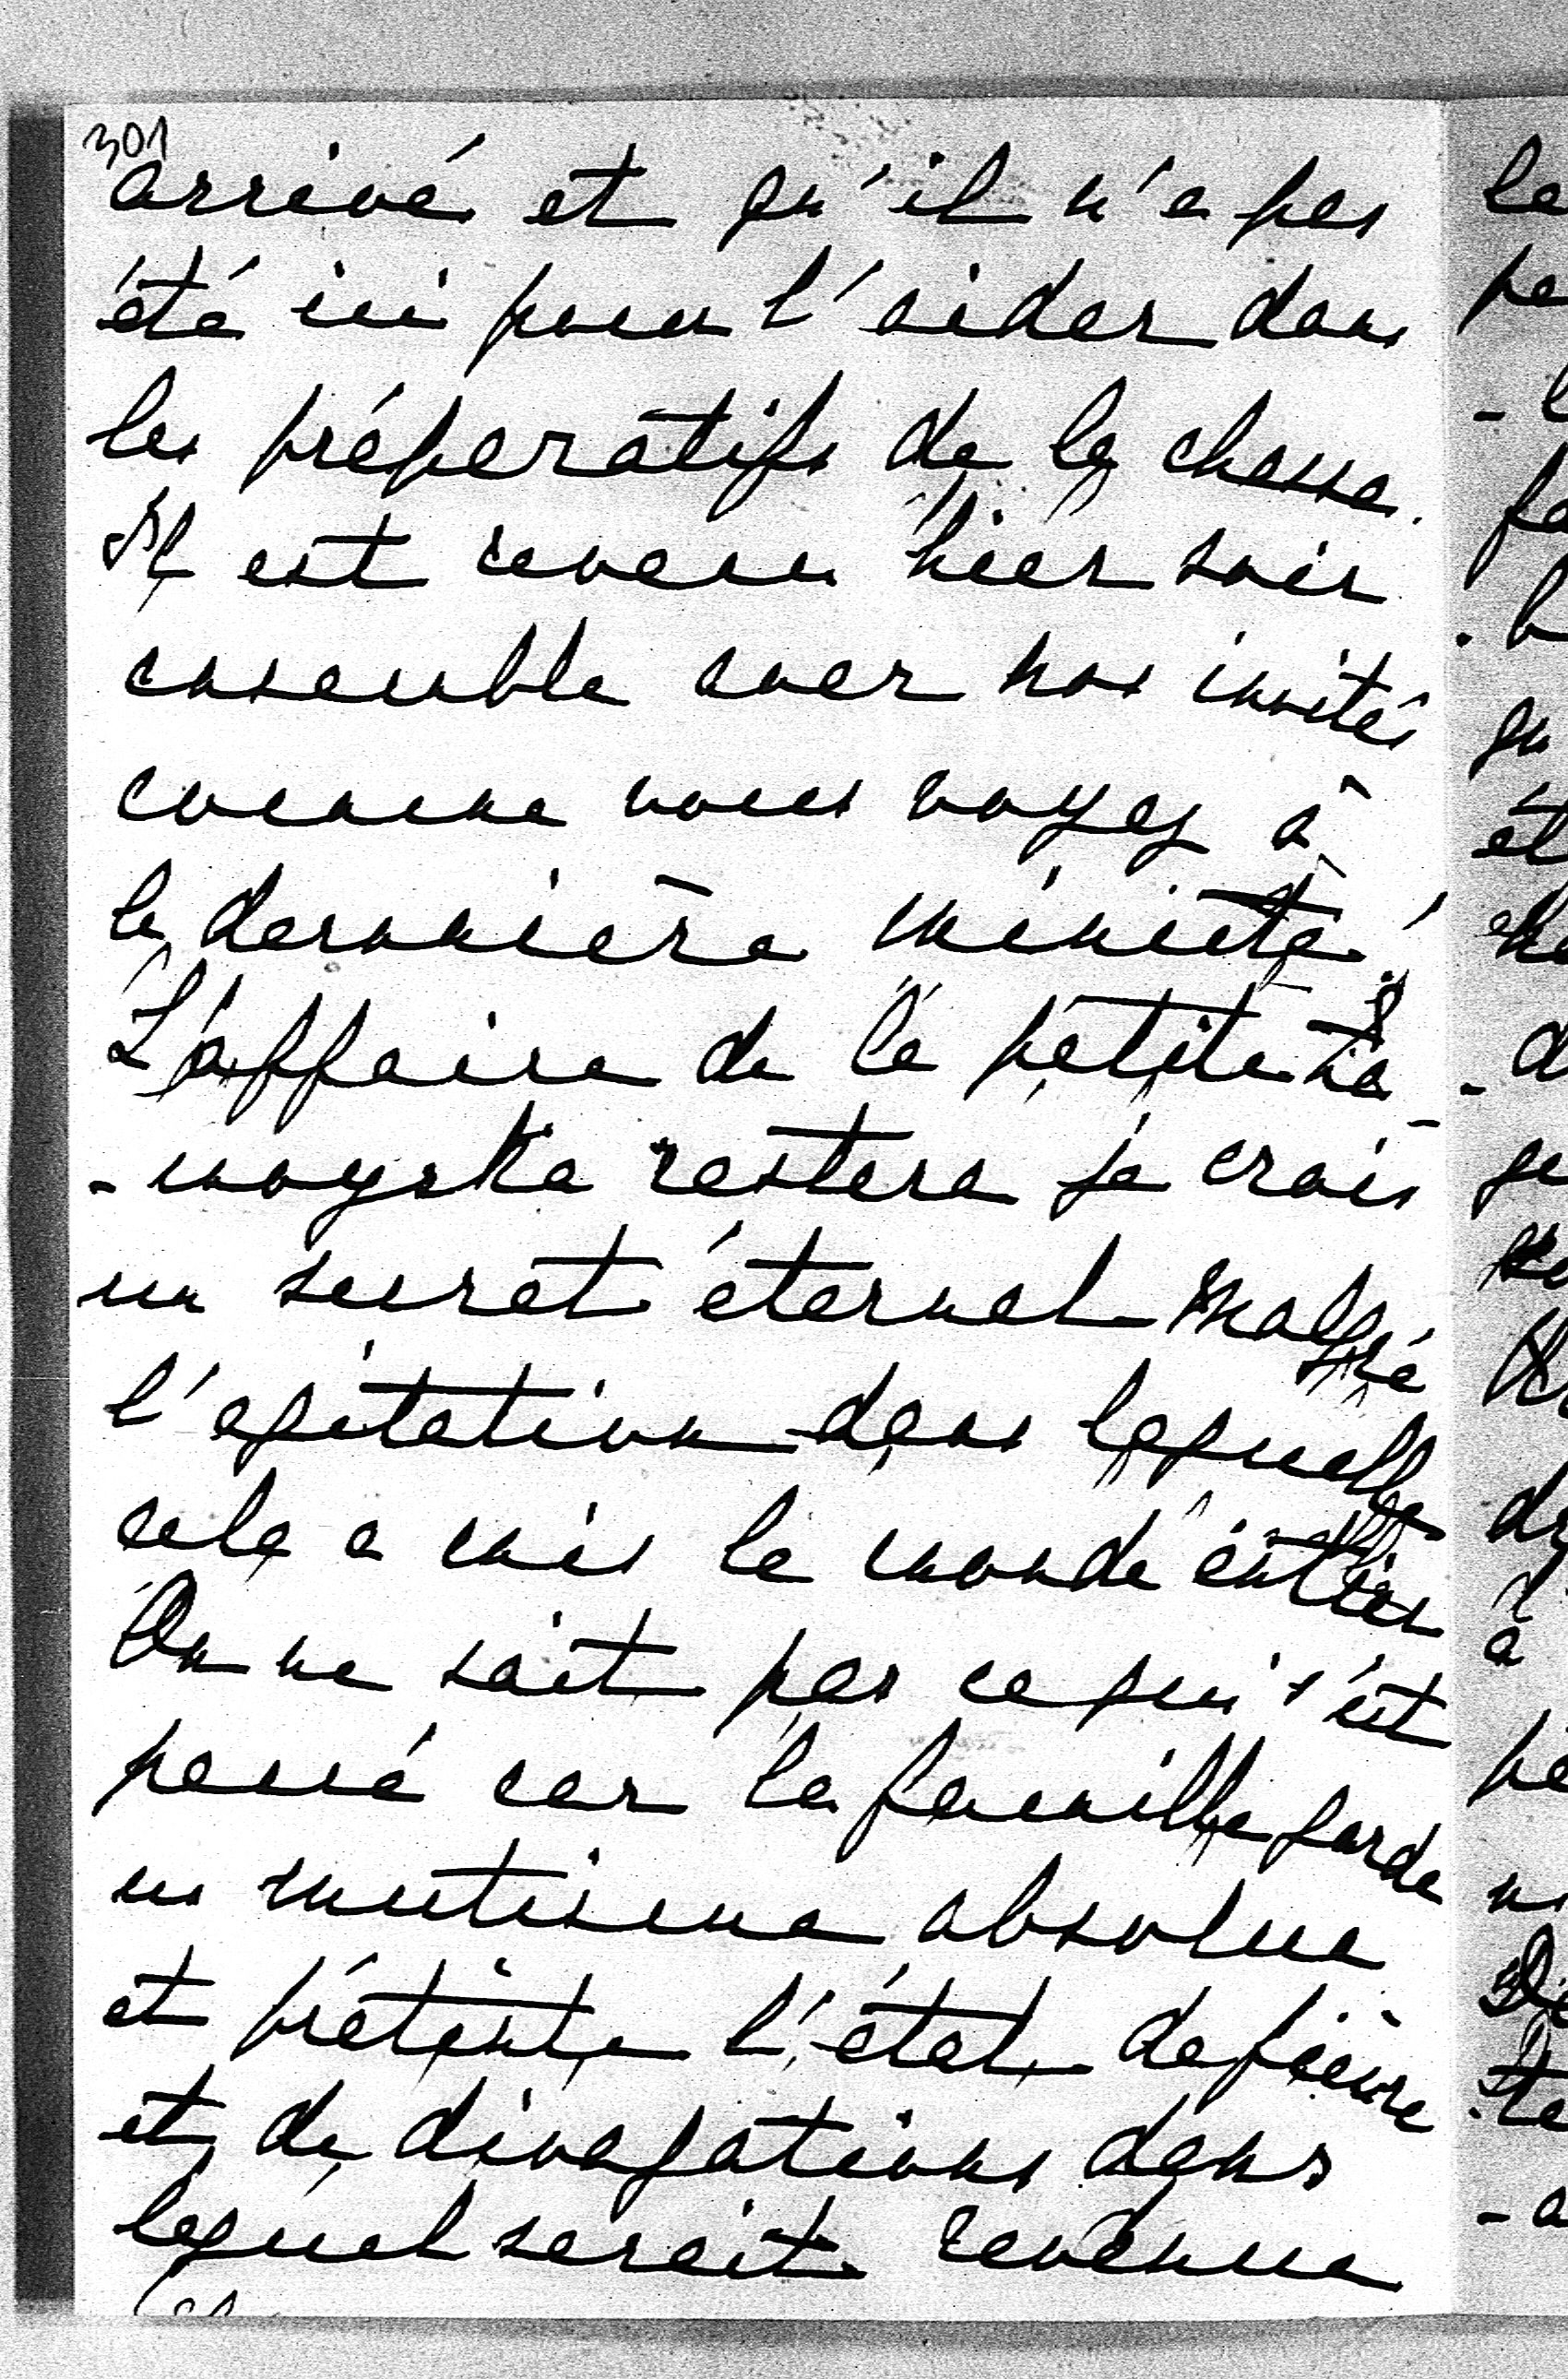 301
arrivé et qu'il n'a pas
été ici pour l'aider dans
les préparatifs de la chasse.
Il est revenu hier soir
ensemble avec nos invités
comme vous voyez à
la dernière minute!
L'affaire de la petite Za-
-moyska restera je crois
un secret éternel malgré
l'agitation dans laquelle
cela a mis le monde entier
On ne sait pas ce qui s'est
passé car la famille garde
un mutisme absolue
et prétexte l'état de fièvre
et de divagations dans
lequel serait revenue